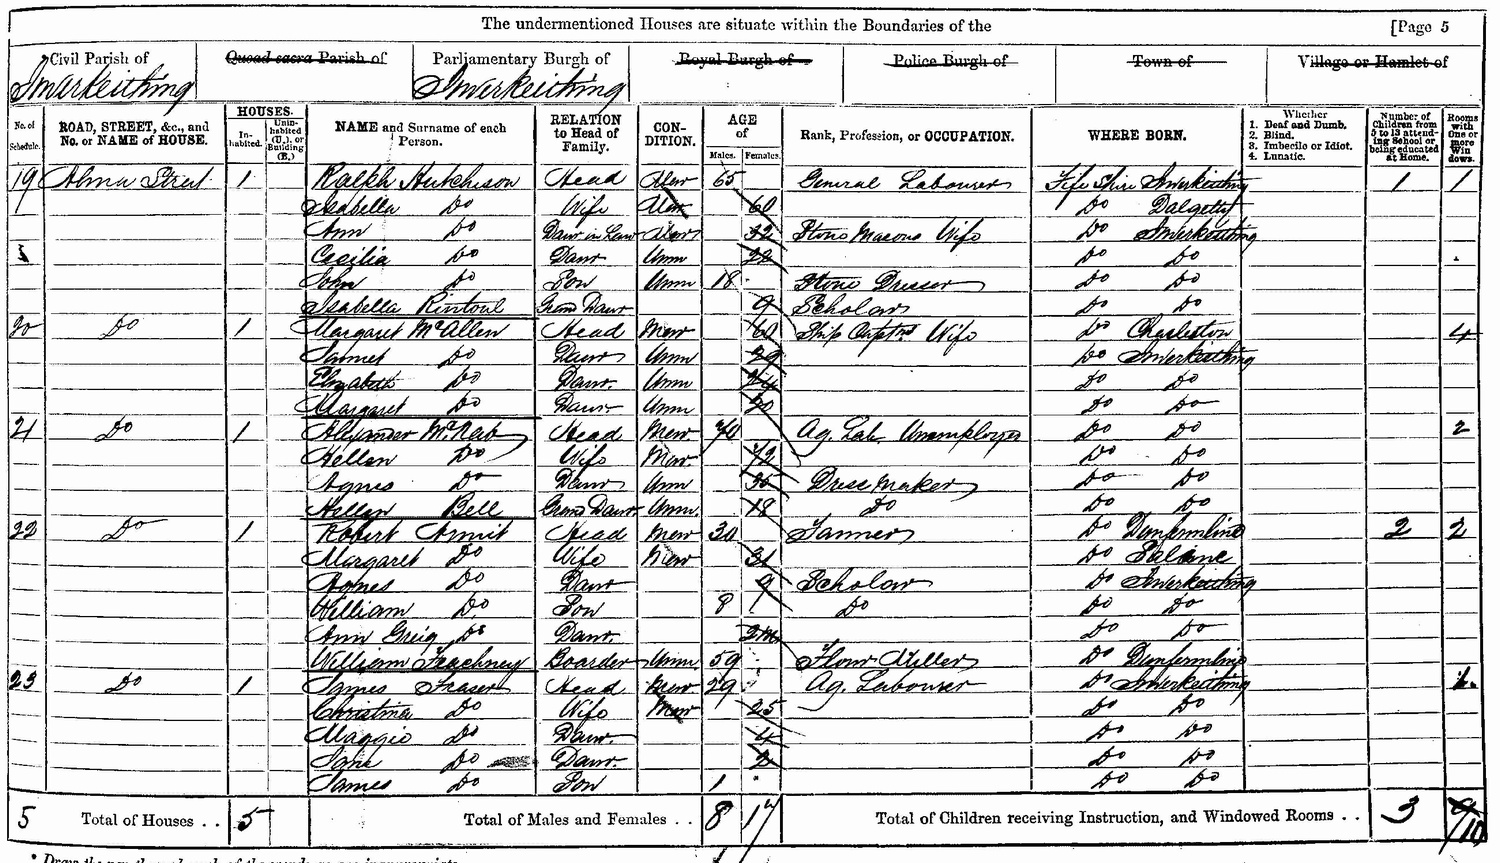 The undermentioned Houses are situate within the Boundaries of the [Page 5
Civil Parish of Quoad sacra Parish of Parliamentary Burgh of Royal Burgh of Police Burgh of Town of Village or Hamlet of
Inverkeithing Inverkeithing
No. of Schedule. ROAD, STREET, &c., and No. or NAME of HOUSE. HOUSES. Inhabited. Uninhabited (U.), or Building (B.) NAME and Surname of each Person. RELATION to Head of Family. CONDITION. AGE of Males. Females. Rank, Profession, or OCCUPATION. WHERE BORN. Whether 1. Deaf and Dumb. 2. Blind. 3. Imbecile or Idiot. 4. Lunatic. Number of Children from 5 to 13 attending School or being educated at Home. Rooms with One or more Windows.
19 Alma Street 1 Ralph Hutchison Head Mar 65 General Labourer Fife Shire Inverkeithing 1 1
Isabella Do Wife Mar 60 Do Dalgetty
Ann Do Daur in Law Mar 32 Stone Masons Wife Do Inverkeithing
Cecilia Do Daur Unm 22 Do Do
John Do Son Unm 18 Stone Dresser Do Do
Isabella Rintoul Grand Daur 9 Scholar Do Do
20 Do 1 Margaret McAllen Head Mar 60 Ship Captns Wife Do Charleston 4
Do Daur Unm 29 Do Inverkeithing
Elizabeth Do Daur Unm 24 Do Do
Margaret Do Daur Unm 20 Do Do
21 Do 1 Alexander McNab Head Mar 70 Ag. Lab Unemployed Do Do 2
Hellen Do Wife Mar 72 Do Do
Agnes Do Daur Unm 35 Dress Maker Do Do
Hellen Bell Grand Daur Unm. 18 Do Do Do
22 Do 1 Robert Armit Head Mar 30 Tanner Do Dunfermline 2 2
Margaret Do Wife Mar 31 Do Saline
Agnes Do Daur 9 Scholar Do Inverkeithing
William Do Son 8 Do Do Do
Ann Greig Do Daur. 2m Do Do
William Feachney Boarder Unm 59 Flour Miller Do Dunfermline
23 Do 1 James Fraser Head Mar 29 Ag. Labourer Do Inverkeithing 1
Christina Do Wife Mar 25 Do Do
Maggie Do Daur. 4 Do Do
Jane Do Daur. 2 Do Do
James Do Son 1 Do Do
5 Total of Houses . . 5 Total of Males and Females . . 8 17 Total of Children receiving Instruction, and Windowed Rooms . . 3 9/10